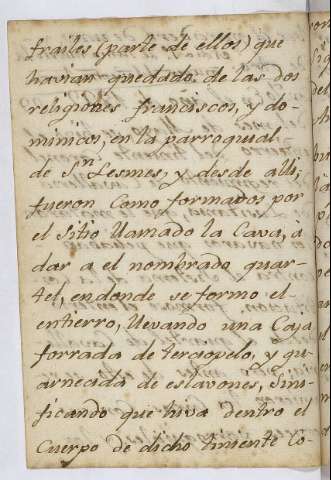 frailes (parte de ellos) que
havian quedado de las dos
religiones franciscos, y do-
minicos, en la parroquial
de Sn. Lesmes, y desde alli,
fueron como formados por
el sitio llamado la Cava, à
dar a el nombrado quar-
tel, en donde se formo el
entierro, llevando una Caja
forrada de terciopelo, y gu-
arnecida de eslavones, Sini-
ficando que hiva dentro el
Cuerpo de dicho tiniente Co-